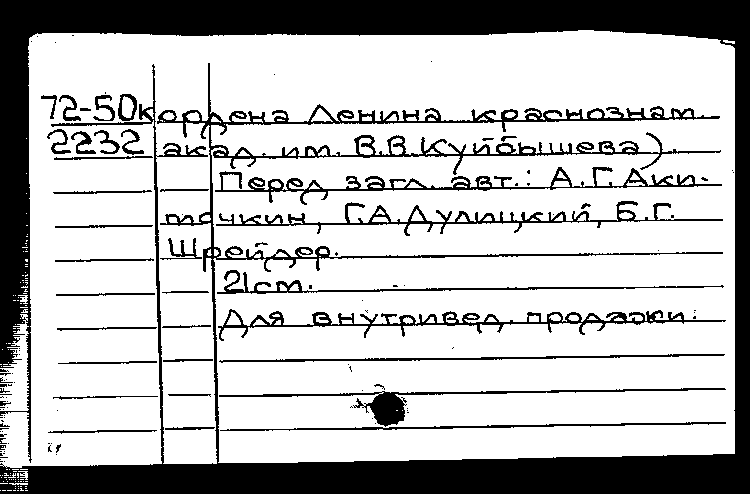 72-50к ордена Ленина краснознам.
2232 акад. им. В.В.Куйбышева).
Перед загл. авт.: А.Г.Аки-
точкин, Г.А.Дулицкий, Б.Г.
Шрейдер.
21см.
Для внутривед. продажи.